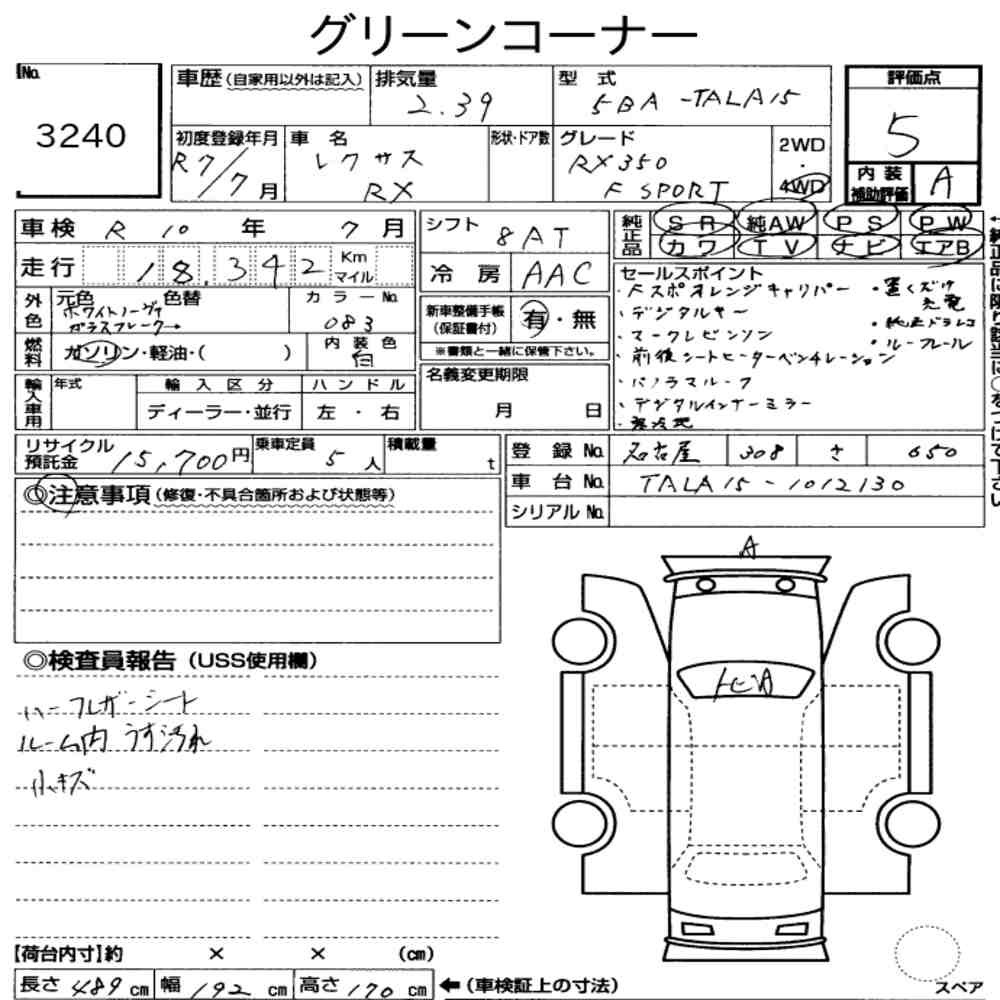 グリーンコーナー
No. 3240
車歴(自家用以外は記入)
排気量 2.39
型式 5BA-TALA15
評価点 5
内装補助評価 A
初度登録年月 R7/7月
車名 レクサス RX
形状・ドア数
グレード RX350 F SPORT
2WD・4WD
車検 R 10年 7月
シフト 8AT
純正品 SR 純AW PS PW
カワ TV ナビ エアB
走行 18,342 Km マイル
冷房 AAC
外色 元色 色替
ホワイトノーヴァガラスフレーク→
カラーNo. 083
新車整備手帳(保証書付) 有・無
※書類と一緒に保管下さい。
燃料 ガソリン・軽油・( )
内装色 白
名義変更期限 月 日
輸入車用 年式 輸入区分 ハンドル
ディーラー・並行 左・右
セールスポイント
・Fスポオレンジキャリパー
・デジタルキー
・マークレビンソン
・前後シートヒーターベンチレーション
・パノラマルーフ
・デジタルインナーミラー
・寒冷地
・置くだけ充電
・純正ドラレコ
・ルーフレール
リサイクル預託金 15,700円
乗車定員 5人
積載量 t
登録No. 名古屋 308 さ 650
車台No. TALA15-1012130
シリアルNo.
◎注意事項(修復・不具合箇所および状態等)
◎検査員報告(USS使用欄)
ハーフレザーシート
ルーム内 うす汚れ
小キズ
A
【荷台内寸】約 × × (cm)
長さ 489cm 幅 192cm 高さ 170cm ←(車検証上の寸法)
スペア